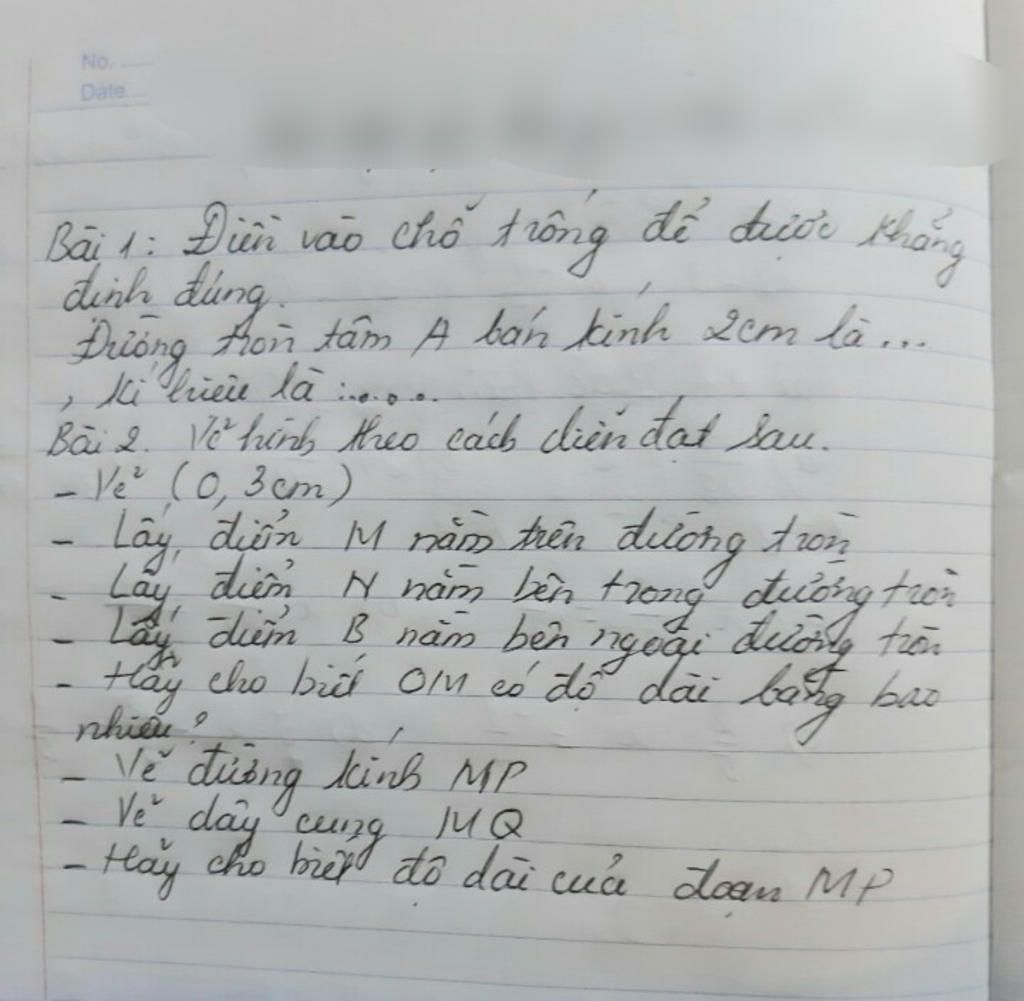 No. ......
Date....
Bài 1: Điền vào chỗ trống để được khẳng
định đúng.
Đường tròn tâm A bán kính 2cm là...
, kí hiệu là :.....
Bài 2. Vẽ hình theo cách diễn đạt sau.
- Vẽ (O, 3cm)
- Lấy điểm M nằm trên đường tròn
- Lấy điểm N nằm bên trong đường tròn
- Lấy điểm B nằm bên ngoài đường tròn
- Hãy cho biết OM có độ dài bằng bao
nhiêu?
- Vẽ đường kính MP
- Vẽ dây cung MQ
- Hãy cho biết độ dài của đoạn MP